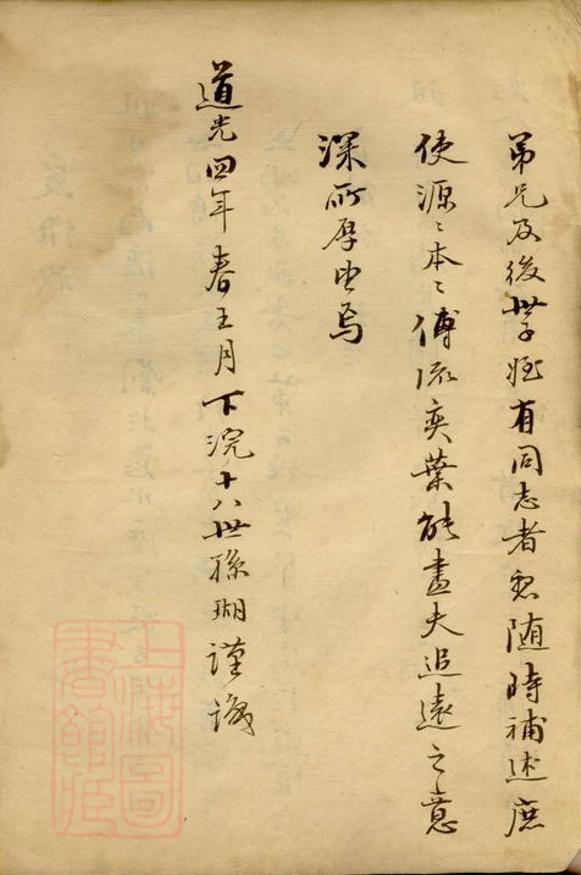 弟兄及後世子姪有同志者随時補述庶
使源〻本〻傳流奕葉能盡夫追遠之意
深所厚焉
道光四年春王月下浣十八世孫瑚謹識
上海圖
書館藏